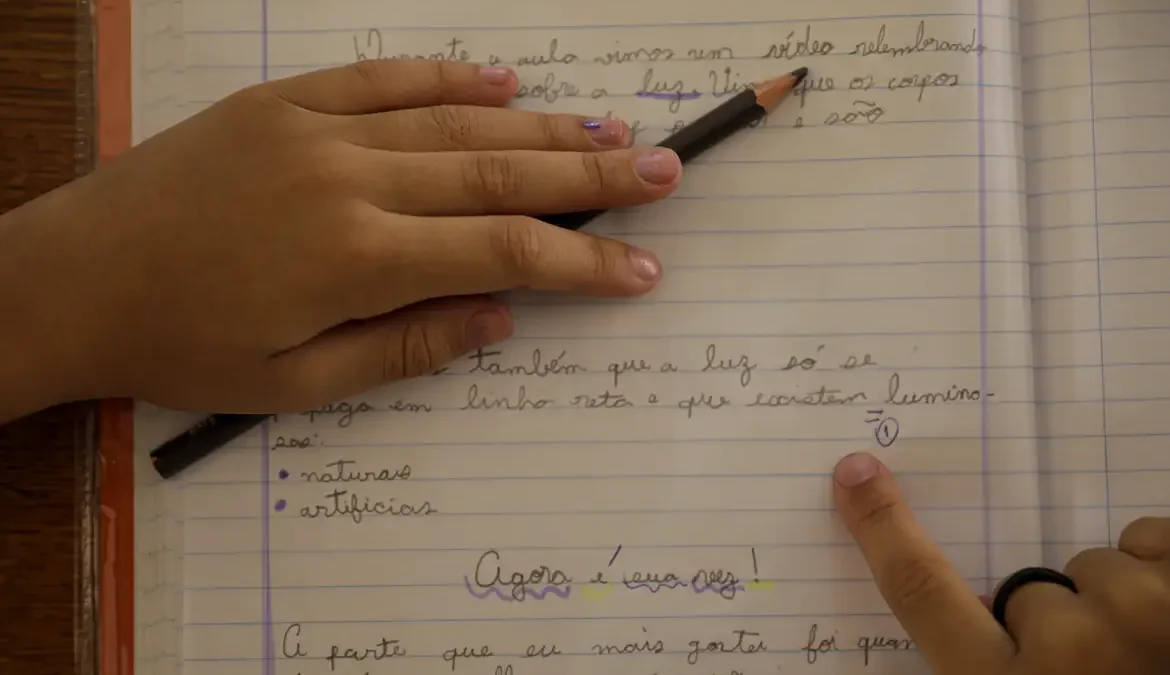 Durante a aula vimos um vídeo relembrando
sobre a luz. que os corpos
e são
também que a luz só se
em linha reta e que existem lumino-
sos:
• naturais
• artificias
= ①
Agora é sua vez!
A parte que eu mais gostei foi quan